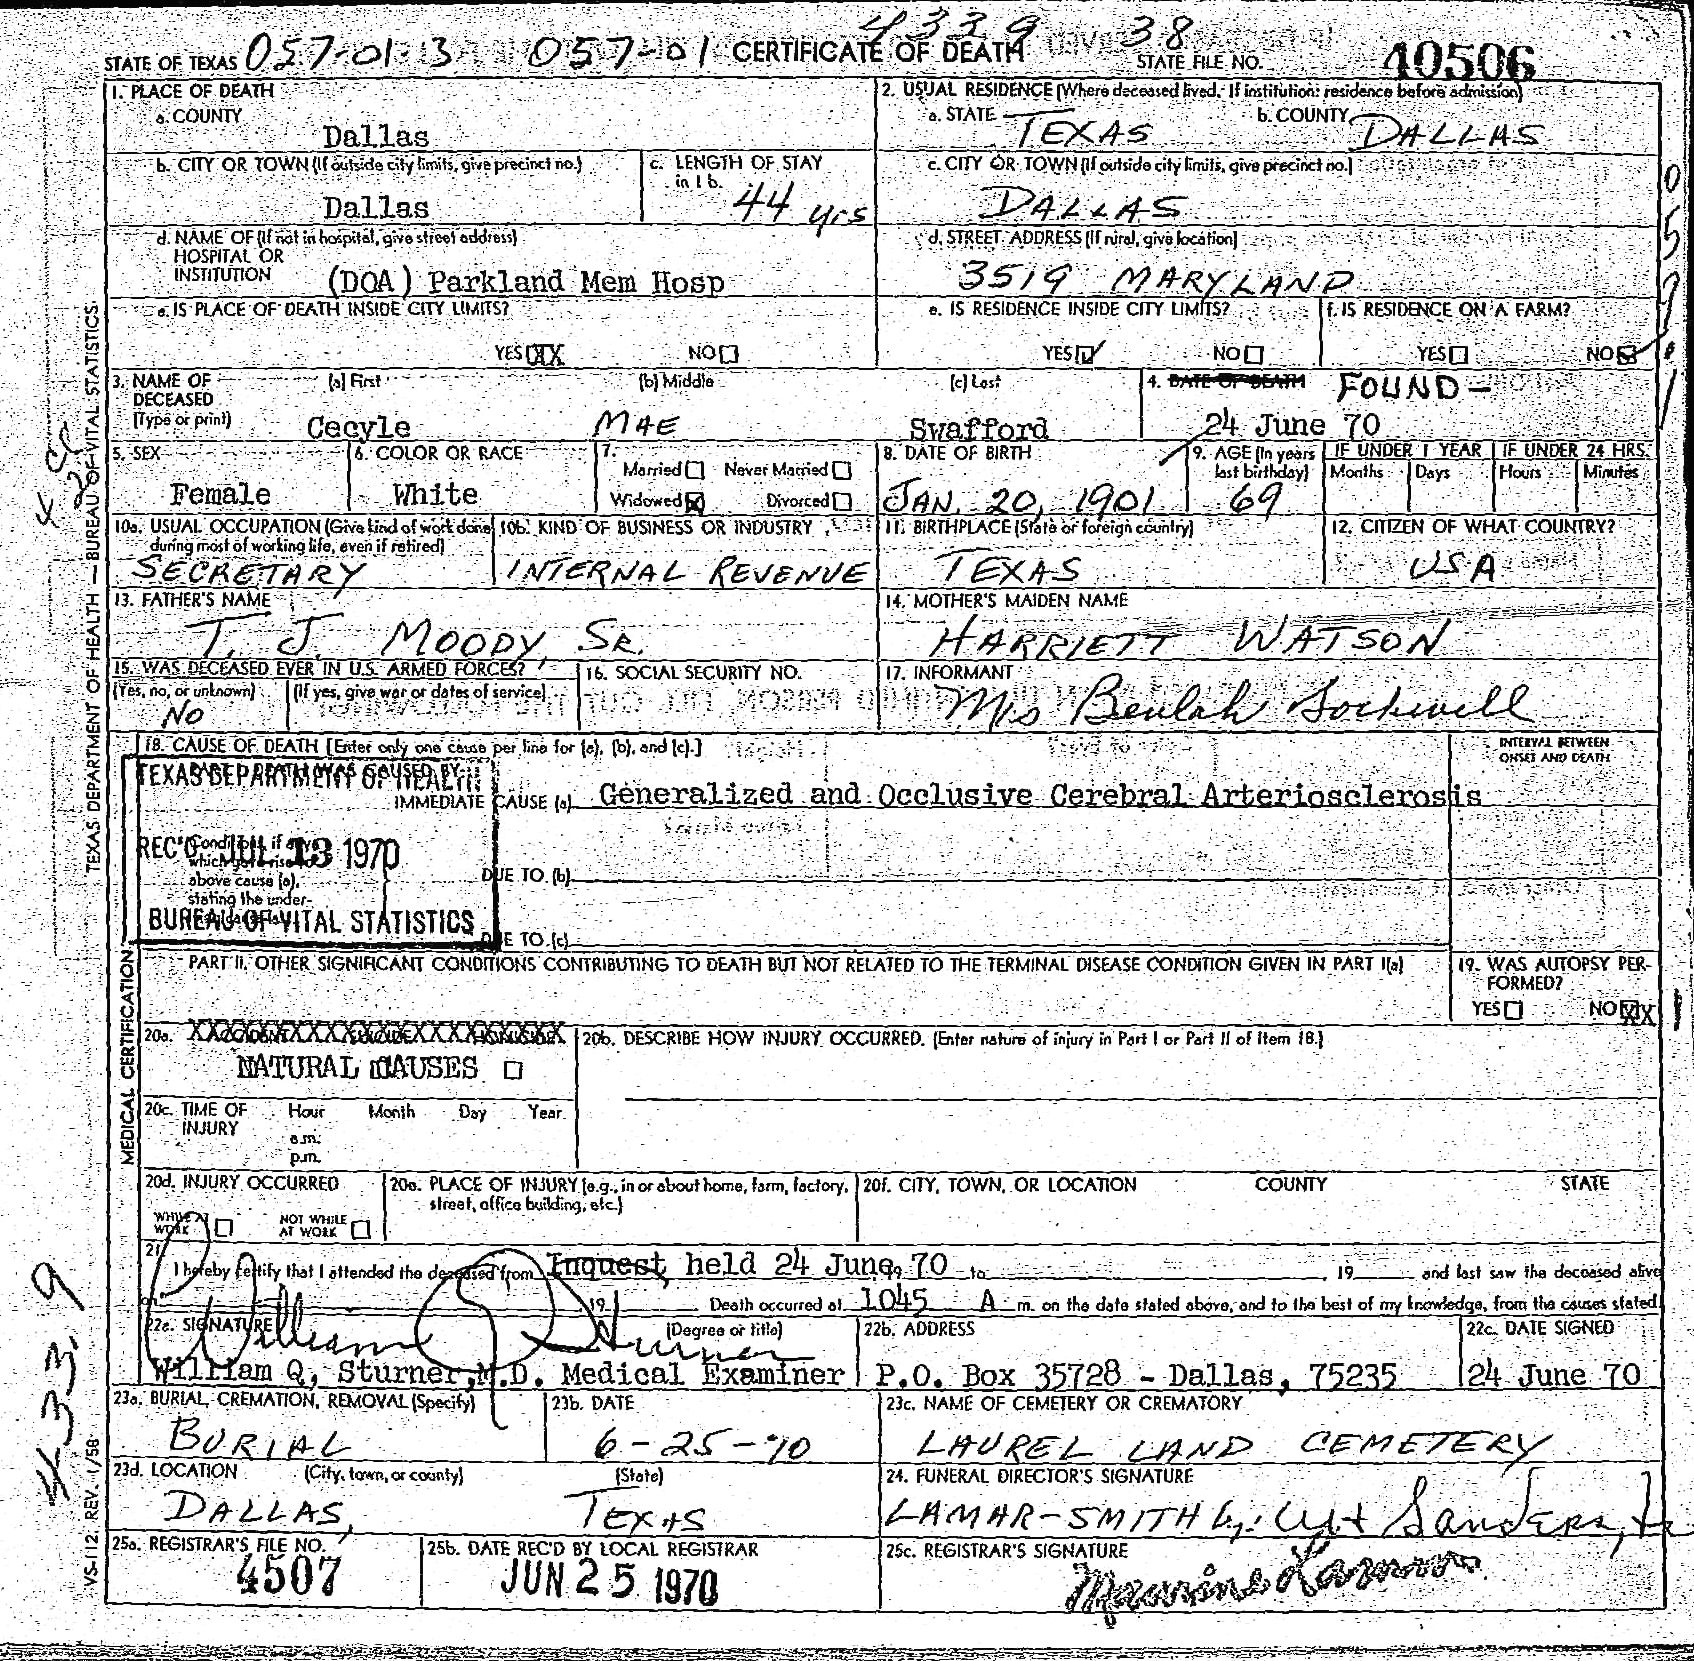 4339 38
STATE OF TEXAS 057-01-3 057-01 CERTIFICATE OF DEATH STATE FILE NO. 40506
1. PLACE OF DEATH
a. COUNTY
Dallas
2. USUAL RESIDENCE (Where deceased lived. If institution: residence before admission)
a. STATE TEXAS b. COUNTY DALLAS
b. CITY OR TOWN (If outside city limits, give precinct no.)
Dallas
c. LENGTH OF STAY
in 1 b.
44 yrs
c. CITY OR TOWN (If outside city limits, give precinct no.)
DALLAS
d. NAME OF (If not in hospital, give street address)
HOSPITAL OR
INSTITUTION (DOA) Parkland Mem Hosp
d. STREET ADDRESS (If rural, give location)
3519 MARYLAND
e. IS PLACE OF DEATH INSIDE CITY LIMITS?
YES XX NO
e. IS RESIDENCE INSIDE CITY LIMITS?
YES NO
f. IS RESIDENCE ON A FARM?
YES NO
3. NAME OF
DECEASED
(Type or print)
(a) First (b) Middle (c) Last
Cecyle MAE Swafford
4. DATE OF DEATH FOUND-
24 June 70
5. SEX
Female
6. COLOR OR RACE
White
7.
Married Never Married
Widowed Divorced
8. DATE OF BIRTH
JAN. 20, 1901
9. AGE (In years
last birthday)
69
IF UNDER 1 YEAR
Months Days
IF UNDER 24 HRS.
Hours Minutes
10a. USUAL OCCUPATION (Give kind of work done
during most of working life, even if retired)
SECRETARY
10b. KIND OF BUSINESS OR INDUSTRY
INTERNAL REVENUE
11. BIRTHPLACE (State or foreign country)
TEXAS
12. CITIZEN OF WHAT COUNTRY?
USA
13. FATHER'S NAME
T. J. MOODY, SR.
14. MOTHER'S MAIDEN NAME
HARRIETT WATSON
15. WAS DECEASED EVER IN U.S. ARMED FORCES?
(Yes, no, or unknown) (If yes, give war or dates of service)
No
16. SOCIAL SECURITY NO.
17. INFORMANT
Mrs Beulah
18. CAUSE OF DEATH [Enter only one cause per line for (a), (b), and (c).]
INTERVAL BETWEEN
ONSET AND DEATH
PART I. DEATH WAS CAUSED BY:
TEXAS DEPARTMENT OF HEALTH
IMMEDIATE CAUSE (a) Generalized and Occlusive Cerebral Arteriosclerosis
REC'D JUL 13 1970
Conditions, if any,
which gave rise to
above cause (a),
stating the under-
DUE TO (b)
BUREAU OF VITAL STATISTICS
DUE TO (c)
PART II. OTHER SIGNIFICANT CONDITIONS CONTRIBUTING TO DEATH BUT NOT RELATED TO THE TERMINAL DISEASE CONDITION GIVEN IN PART I(a)
19. WAS AUTOPSY PER-
FORMED?
YES NO XX
20a. XXXXXXXXXXXXXXXXXXXXXXX
NATURAL CAUSES
20b. DESCRIBE HOW INJURY OCCURRED. (Enter nature of injury in Part I or Part II of item 18.)
20c. TIME OF
INJURY
Hour Month Day Year
a.m.
p.m.
20d. INJURY OCCURRED
WHILE AT
WORK
NOT WHILE
AT WORK
20e. PLACE OF INJURY (e.g., in or about home, farm, factory,
street, office building, etc.)
20f. CITY, TOWN, OR LOCATION COUNTY STATE
21.
I hereby certify that I attended the deceased from Inquest held 24 June, 70 to , 19 and last saw the deceased alive
on 19 Death occurred at 1045 A m. on the date stated above, and to the best of my knowledge, from the causes stated
22a. SIGNATURE (Degree or title)
William Q Sturner
William Q, Sturner, M.D. Medical Examiner
22b. ADDRESS
P.O. Box 35728 - Dallas, 75235
22c. DATE SIGNED
24 June 70
23a. BURIAL, CREMATION, REMOVAL (Specify)
BURIAL
23b. DATE
6-25-70
23c. NAME OF CEMETERY OR CREMATORY
LAUREL LAND CEMETERY
23d. LOCATION (City, town, or county) (State)
DALLAS, TEXAS
24. FUNERAL DIRECTOR'S SIGNATURE
LAMAR-SMITH by: Sanders, Jr
25a. REGISTRAR'S FILE NO.
4507
25b. DATE REC'D BY LOCAL REGISTRAR
JUN 25 1970
25c. REGISTRAR'S SIGNATURE
TEXAS DEPARTMENT OF HEALTH — BUREAU OF VITAL STATISTICS
MEDICAL CERTIFICATION
VS-112 REV. 1/58
4339